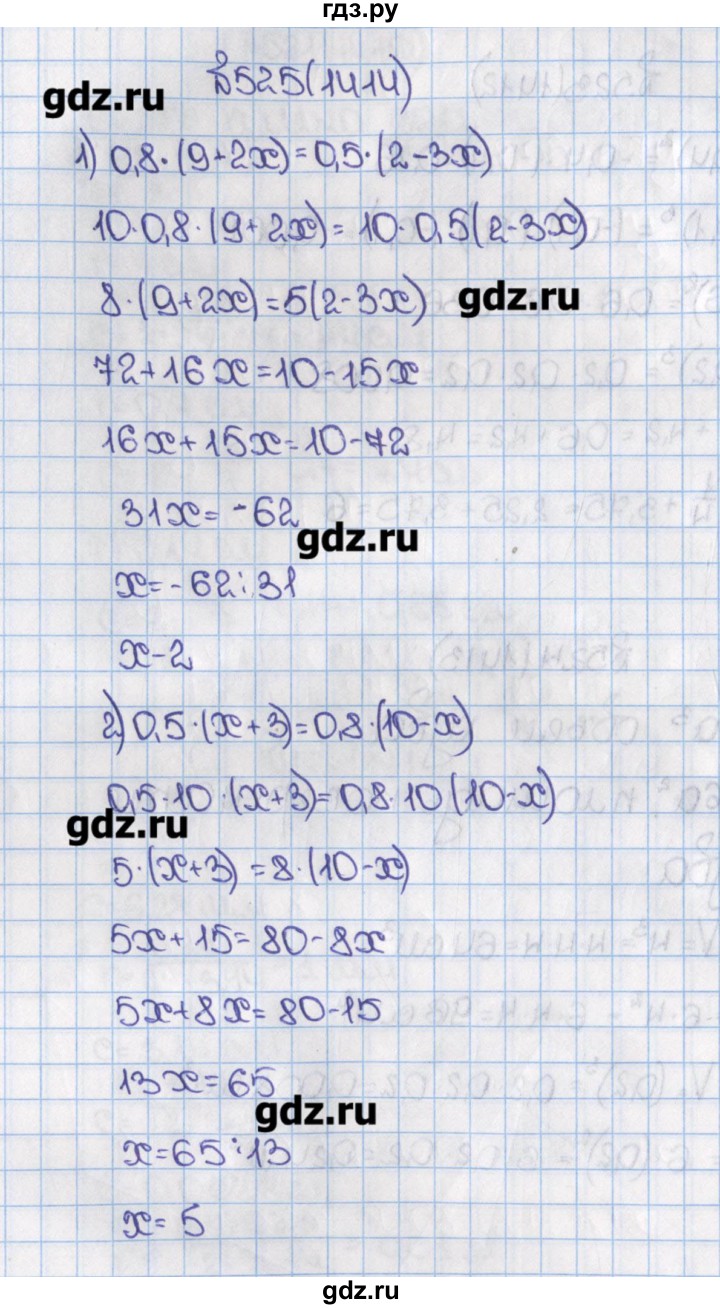 гдз.ру
№525(1414)
gdz.ru
1) 0,8·(9+2x)=0,5·(2-3x)
10·0,8·(9+2x)=10·0,5(2-3x)
8·(9+2x)=5(2-3x)
gdz.ru
72+16x=10-15x
16x+15x=10-72
31x=-62
gdz.ru
x=-62:31
x-2
2) 0,5·(x+3)=0,8·(10-x)
0,5·10·(x+3)=0,8·10(10-x)
gdz.ru
5·(x+3)=8·(10-x)
5x+15=80-8x
5x+8x=80-15
13x=65
gdz.ru
x=65:13
x=5
gdz.ru